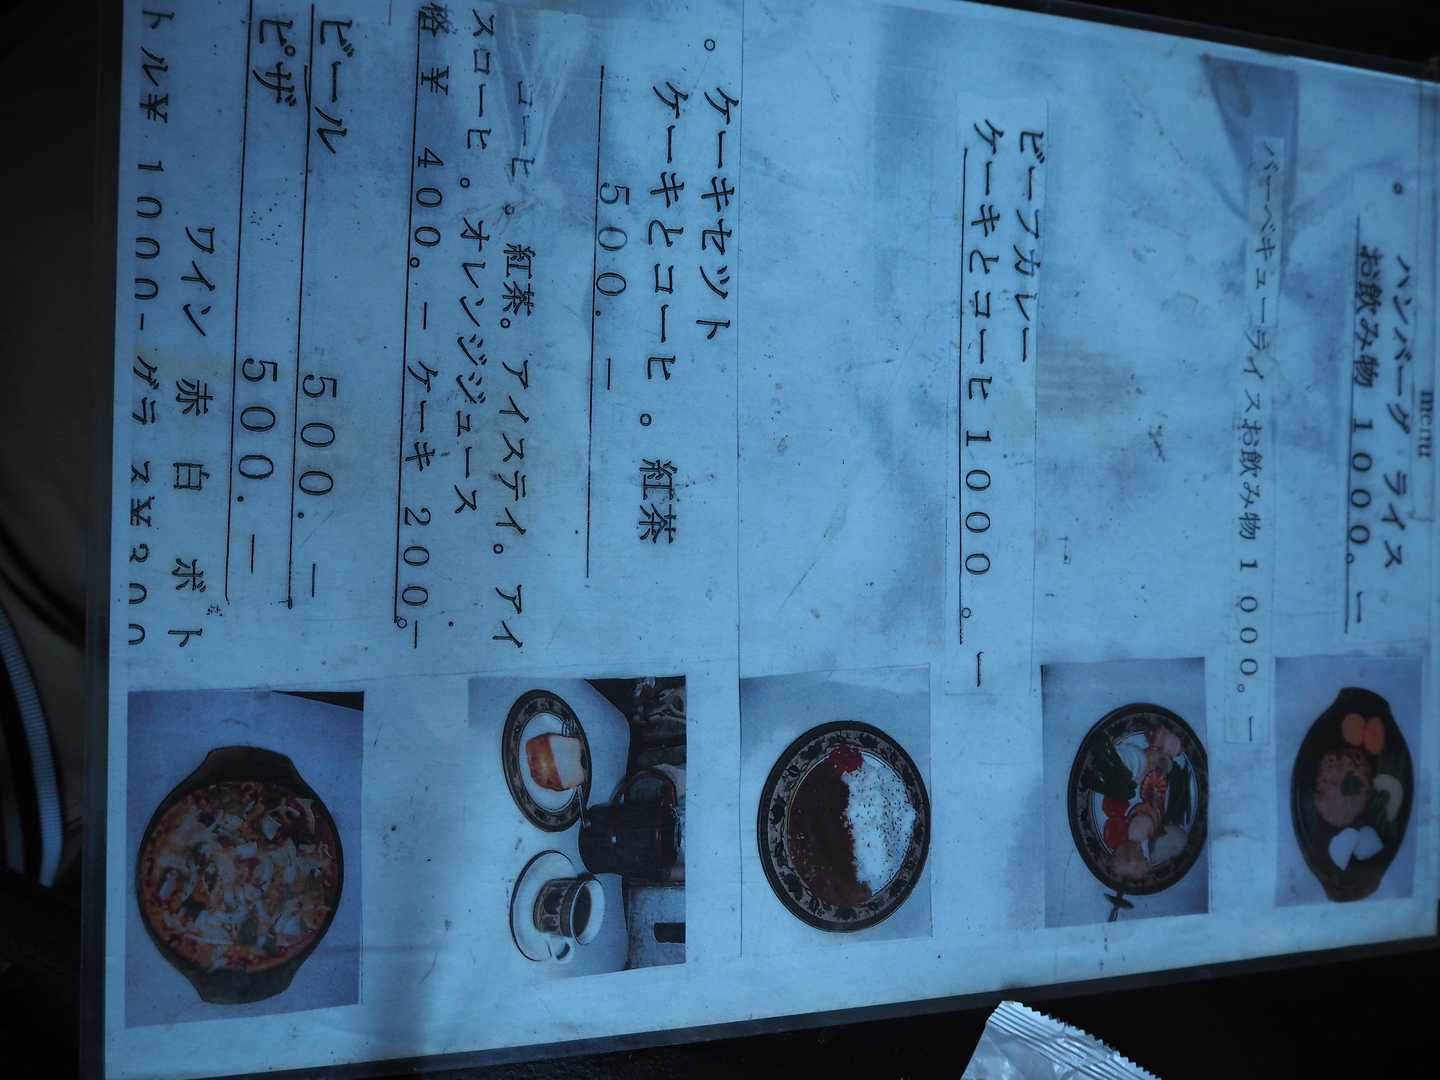 menu
ハンバーグ ライス
。お飲み物 1000。ー
バーベキューライスお飲み物 1000。ー
ビーフカレー
ケーキとコーヒ 1000 。ー
ケーキセット
。ケーキとコーヒ 。紅茶
500.ー
コーヒ 。紅茶。アイスティ。アイ
スコーヒ 。オレンジジュース
格 ¥ 400。ー ケーキ 200。ー
ビール 500.ー
ピザ 500.ー
ワイン 赤 白 ボト
トル¥ 1000- グラ ス¥200